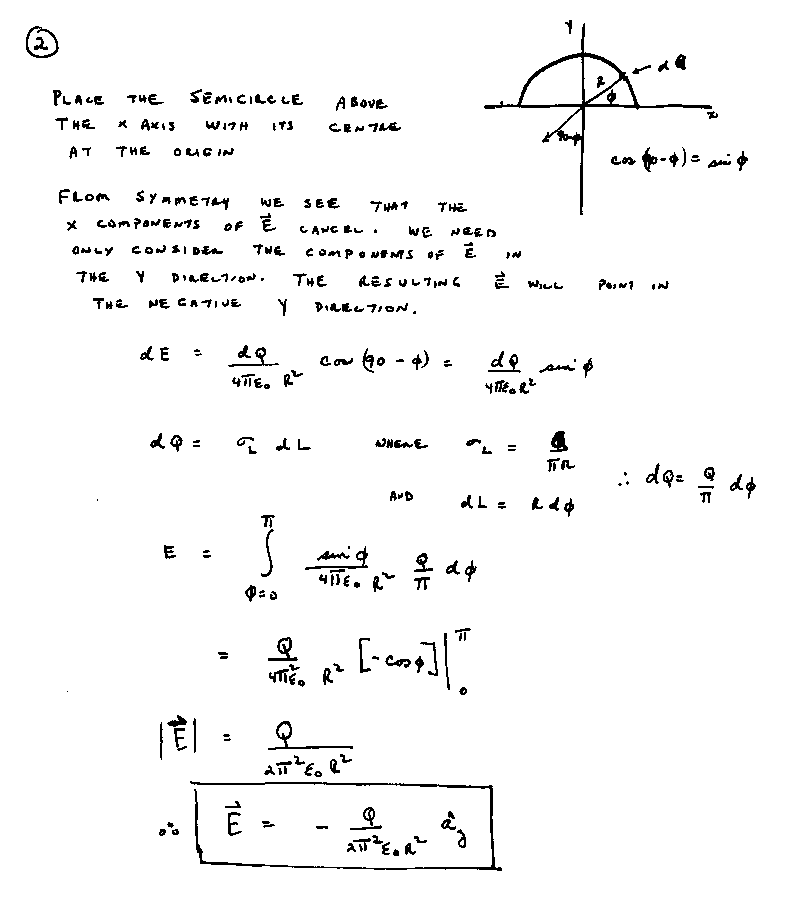 2
Y
dQ
R
φ
x
90-φ
cos (90-φ) = sin φ
PLACE THE SEMICIRCLE ABOVE
THE X AXIS WITH ITS CENTRE
AT THE ORIGIN
FROM SYMMETRY WE SEE THAT THE
X COMPONENTS OF E⃗ CANCEL. WE NEED
ONLY CONSIDER THE COMPONENTS OF E⃗ IN
THE Y DIRECTION. THE RESULTING E⃗ WILL POINT IN
THE NEGATIVE Y DIRECTION.
dE = dQ/(4πε₀ R²) cos (90 - φ) = dQ/(4πε₀R²) sin φ
dQ = σ_L dL WHERE σ_L = Q/(πR) ∴ dQ = Q/π dφ
AND dL = R dφ
E = ∫_{φ=0}^{π} sin φ/(4πε₀ R²) Q/π dφ
= Q/(4π²ε₀ R²) [-cos φ]|₀^π
|E⃗| = Q/(2π²ε₀R²)
∴ E⃗ = - Q/(2π²ε₀R²) â_y